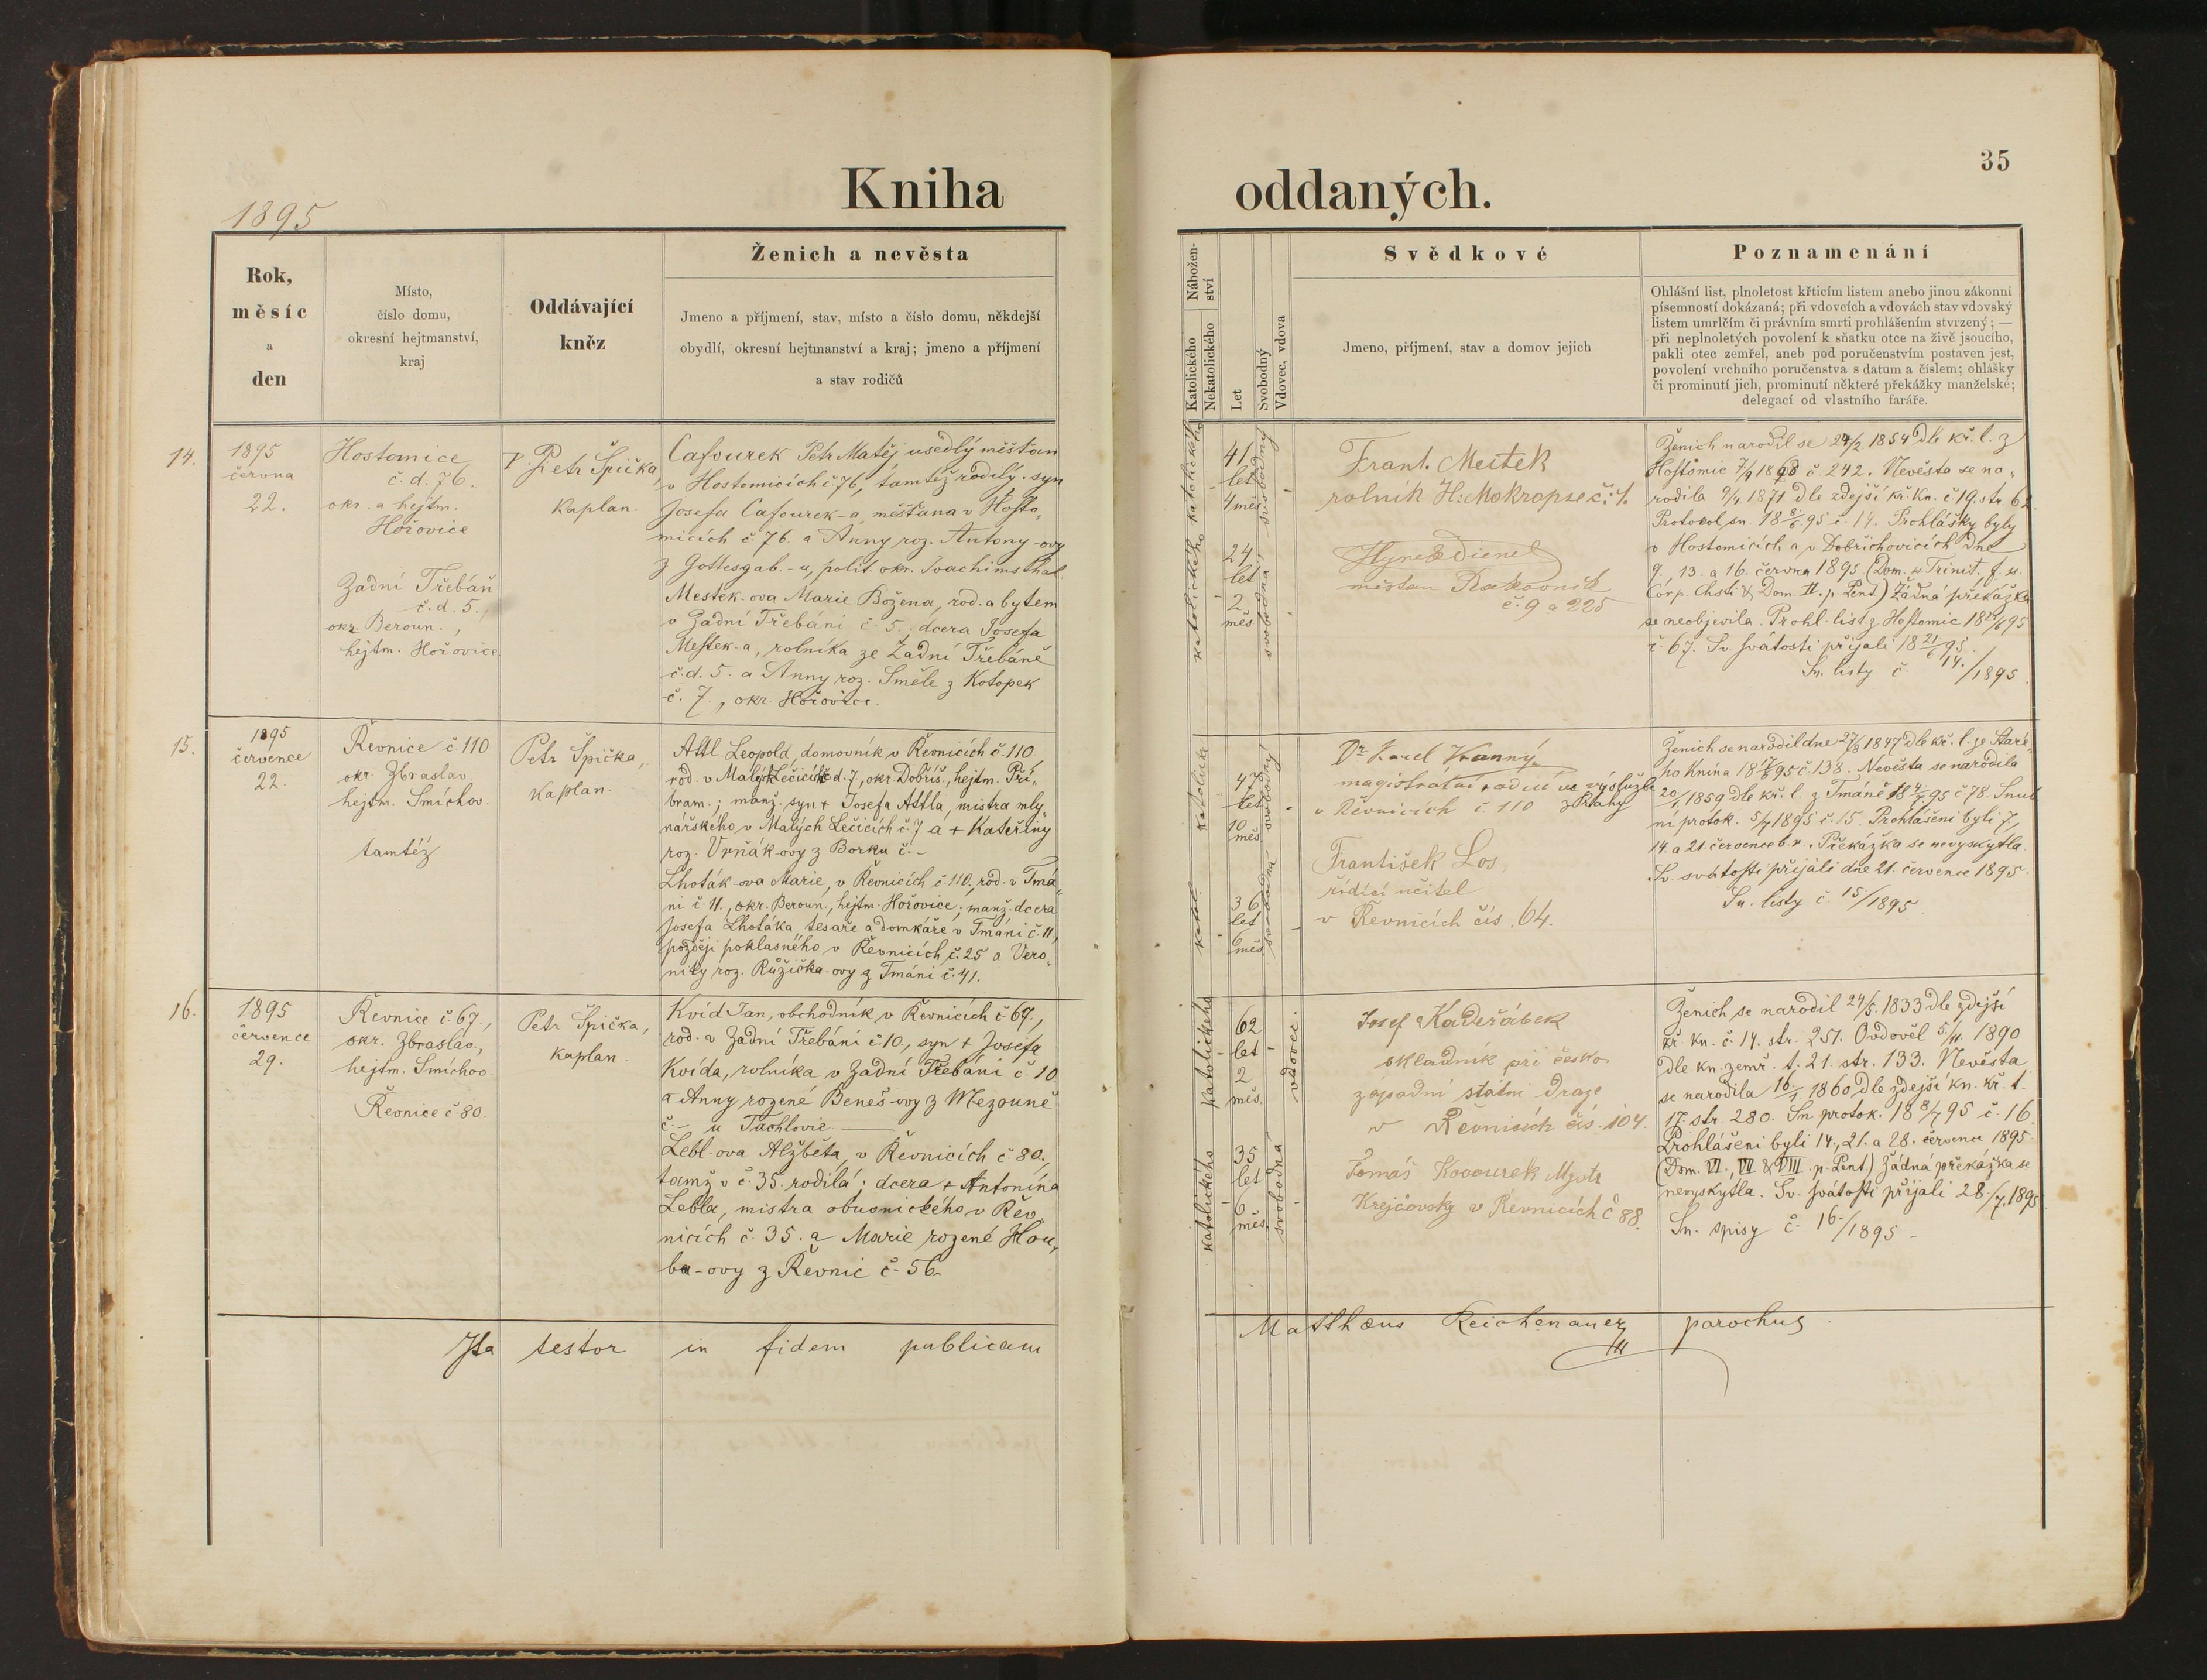 35
Kniha oddaných.
1895
Rok,
měsíc
a
den
Místo,
číslo domu,
okresní hejtmanství,
kraj
Oddávající
kněz
Ženich a nevěsta
Jmeno a příjmení, stav, místo a číslo domu, někdejší
obydlí, okresní hejtmanství a kraj; jmeno a příjmení
a stav rodičů
Nábožen-
ství
Katolického
Nekatolického
Let
Svobodný
Vdovec, vdova
Svědkové
Jmeno, příjmení, stav a domov jejich
Poznamenání
Ohlášní list, plnoletost křticím listem anebo jinou zákonni
písemností dokázaná; při vdovcích a vdovách stav vdovský
listem umrlčím či právním smrti prohlášením stvrzený; —
při neplnoletých povolení k sňatku otce na živě jsoucího,
pakli otec zemřel, aneb pod poručenstvím postaven jest,
povolení vrchního poručenstva s datum a číslem; ohlášky
či prominutí jich, prominutí některé překážky manželské;
delegací od vlastního faráře.
14.
1895
června
22.
Hostomice
č.d. 76.
okr. a hejtm.
Hořovice
Zadní Třebáň
č.d. 5.,
okr. Beroun.,
hejtm. Hořovice
P. Petr Špička,
Kaplan.
Cafourek Petr Matěj, usedlý měšťan
v Hostomicích č 76, tamtéž rodilý. syn
Josefa Cafourek-a, měšťana v Hosto„
micích č 76. a Anny roz. Antony-ovy
z Gottesgab.-u, polit. okr. Joachimsthal
Mestek-ova Marie Božena, rod. a bytem
v Zadní Třebáni č. 5.; dcera Josefa
Mestek-a, rolníka ze Zadní Třebáně
č.d. 5. a Anny roz. Směle z Kotopek
č. 7., okr. Hořovice.
katolického katolického
41
let
4 měs.
24
let
2
měs
svobodný
svobodná
Frant. Mestek
rolník H: Mokropse č: 1.
Hynek Dienel
měšťan Rakovník
č. 9 a 225
Ženich narodil se 24/2 1854 dle kř. l. z
Hostomic 7/9 1868 č 242. Nevěsta se na„
rodila 9/4 1871 dle zdejší kř. kn. č 19 str. 62
Protocol sn. 18 8/6 95 č. 14. Prohlášky byly
v Hostomicích a v Dobřichovicích dne
9., 13. a 16. června 1895 (Dom. ss Trinit., f. ss.
Corp. Chsti & Dom. II. p. Pent.) Žádná překážka
se neobjevila. Prohl. list z Hostomic 18 20/6 95
č. 67. Sv. svátosti přijali 18 21/6 95.
Sn. listy č. 14./1895.
15.
1895
července
22.
Řevnice č 110
okr. Zbraslav
hejtm. Smíchov.
tamtéž
Petr Špička,
kaplan.
Attl Leopold, domovník v Řevnicích č. 110
rod. v Malých Lečicích č d. 7, okr. Dobříš., hejtm. Pří„
bram.; manž. syn + Josefa Attla, mistra mly„
nářského v Malých Lečicích č. 7 a + Kateřiny
roz. Vrňák-ovy z Borku č. –
Lhoták-ova Marie, v Řevnicích č 110, rod. v Tmá„
ni č 11., okr. Beroun., hejtm. Hořovice; manž. dcera
Josefa Lhotáka, tesaře a domkáře v Tmáni č. 11,
později poklasného v Řevnicích č. 25 a Vero„
niky roz. Růžička-ovy z Tmáni č. 41.
katolické
katol.
47
let
10
měs.
36
let
6
měs.
svobodný
svobodná
Dr Karel Kranný
magistrátní radní ve výslužbě
v Řevnicích č. 110 z Prahy
František Los,
řídící učitel
v Řevnicích čís. 64.
Ženich se narodil dne 27/8 1847 dle kř. l. ze Staré„
ho Knína 18 17/6 95 č. 138. Nevěsta se narodila
20/1 1859 dle kř. l. z Tmáně 18 4/7 95 č 78. Snub„
ní protok. 5/7 1895 č. 15. Prohlášeni byli 7,
14. a 21. července b. r. Překážka se nevyskytla.
Sv. svátosti přijali dne 21. července 1895.
Sn. listy č. 15/1895.
16.
1895
července
29.
Řevnice č. 67.,
okr. Zbraslav.,
hejtm. Smíchov.
Řevnice č 80.
Petr Špička,
kaplan.
Kvíd Jan, obchodník v Řevnicích č. 67.,
rod. v Zadní Třebáni č. 10., syn + Josefa
Kvída, rolníka v Zadní Třebáni č. 10
a Anny rozené Beneš-ovy z Mezouně
č. – u Tachlovic. —
Lebl-ova Alžběta, v Řevnicích č. 80.,
tamž v č. 35. rodilá; dcera + Antonína
Lebla, mistra obuvnického v Řev„
nicích č. 35. a Marie rozené Hou„
ba-ovy z Řevnic č. 56.
katolického
katolického
62
let
2
měs.
35
let
6
měs.
vdovec.
svobodná
Josef Kadeřábek
skladník při česko
západní státní draze
v Řevnicích čís. 104.
Tomáš Kocourek Mystr
Krejčovský v Řevnicích č 88.
Ženich se narodil 24/5. 1833 dle zdejší
kř. kn. č. 14. str. 251. Ovdověl 5/11. 1890
dle kn. zemř. t. 21. str. 133. Nevěsta
se narodila 16/1 1860 dle zdejší kn. kř. t.
17. str. 280. Sn. protok. 18 8/7 95 č. 16.
Prohlášeni byli 14., 21. a 28. července 1895
(Dom. VI., VII & VIII. p. Pent.) Žádná překážka se
nevyskytla. Sv. svátosti přijali 28/7. 1895
Sn. spisy č. 16./1895 –
Ita testor in fidem publicam Matthæus Reichenauer parochus